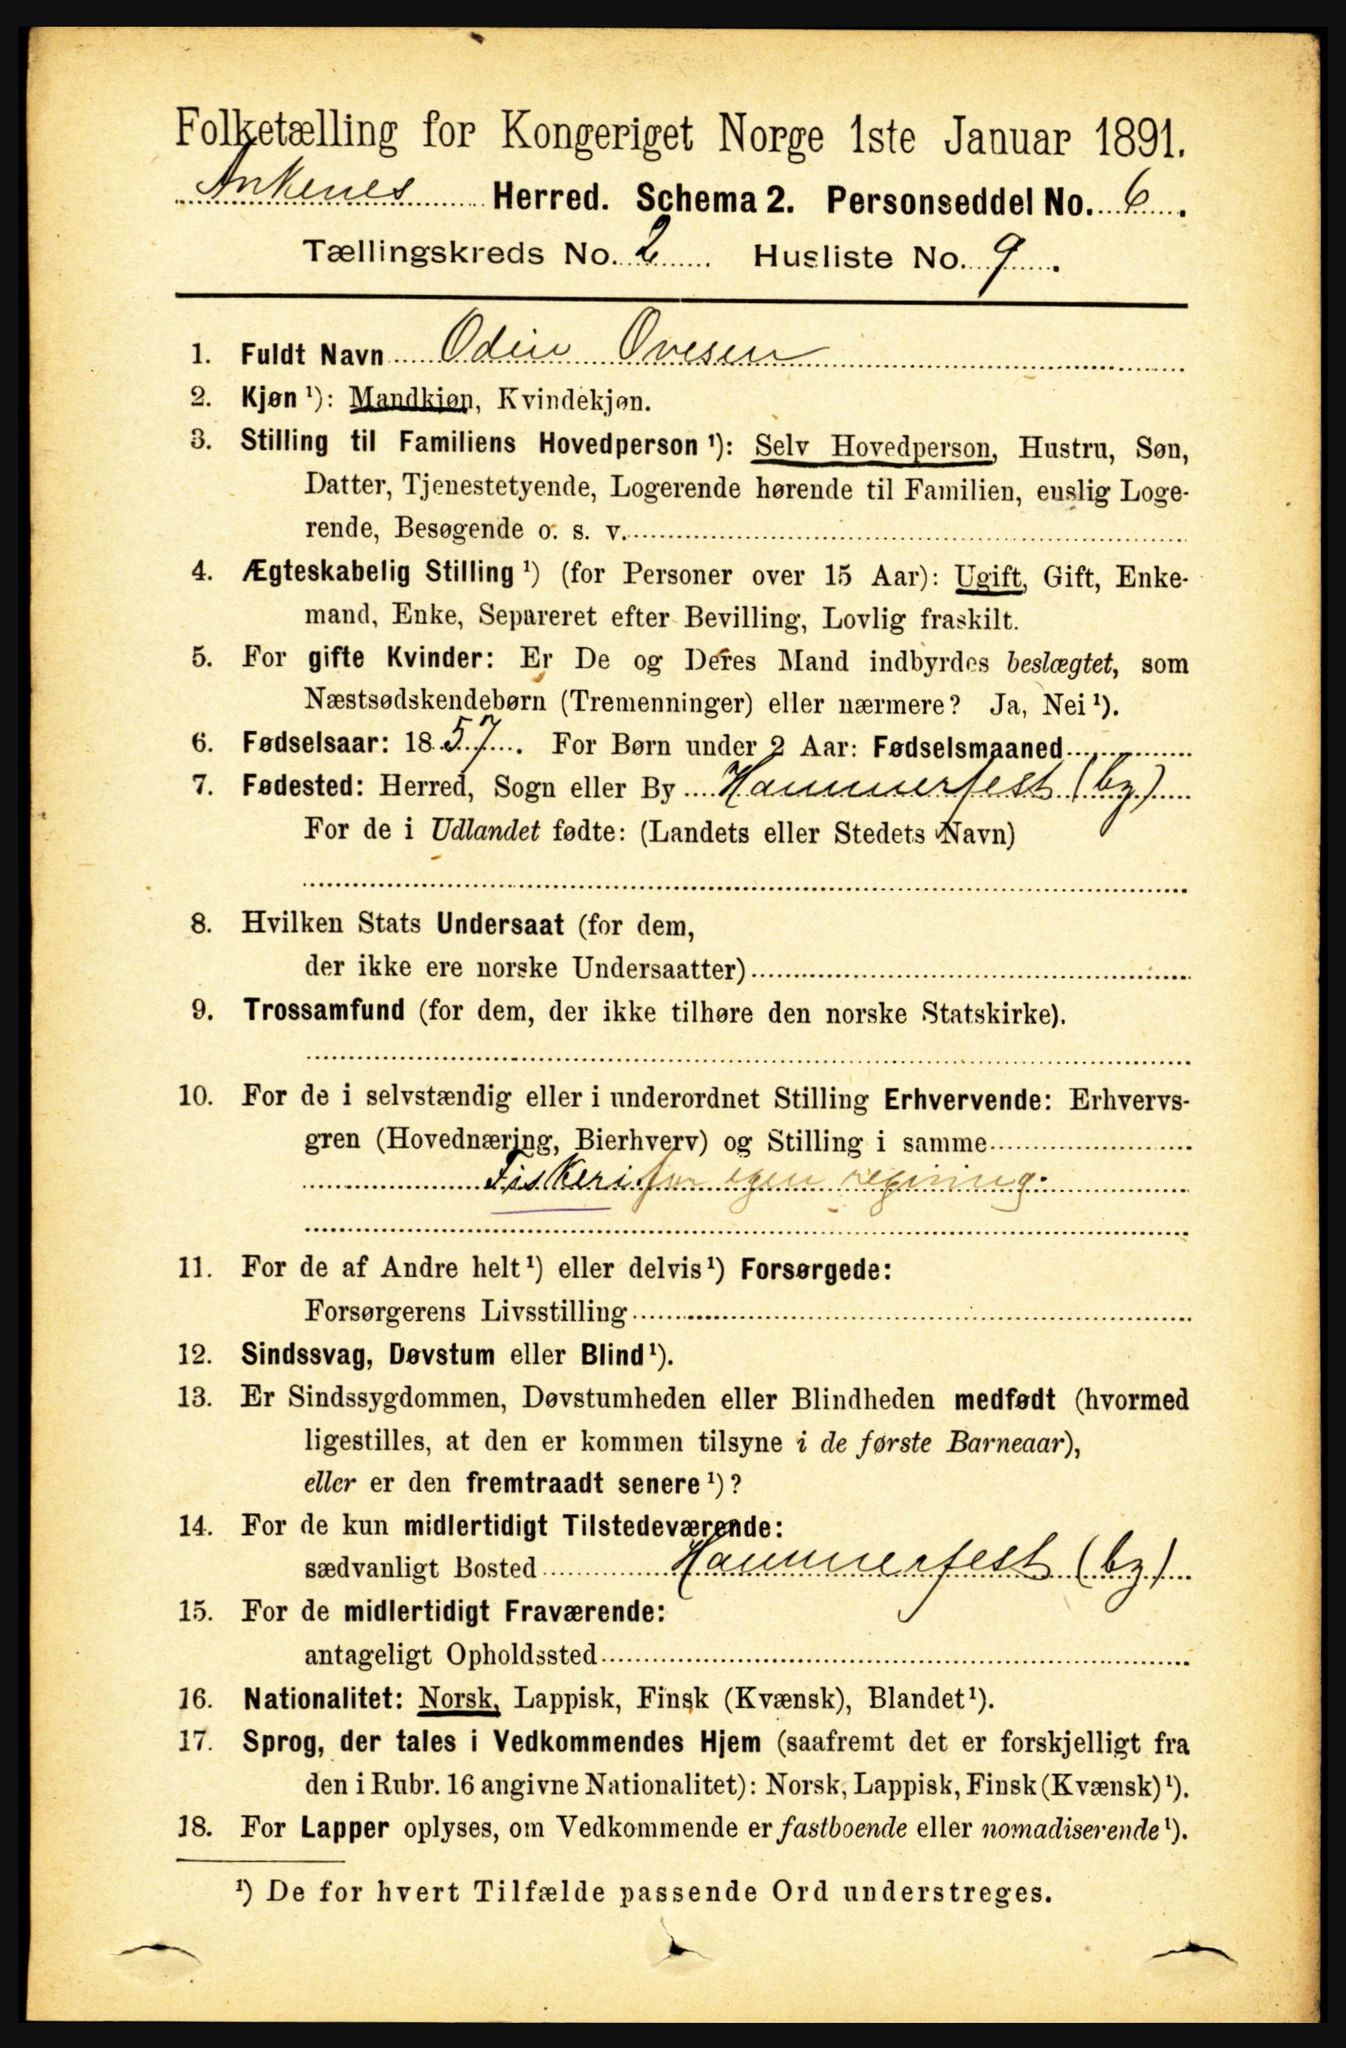 Folketælling for Kongeriget Norge 1ste Januar 1891.
Ankenes Herred. Schema 2. Personseddel No. 6.
Tællingskreds No. 2 Husliste No. 9.
1. Fuldt Navn Odin Ovesen
2. Kjøn ¹): Mandkjøn, Kvindekjøn.
3. Stilling til Familiens Hovedperson ¹): Selv Hovedperson, Hustru, Søn,
Datter, Tjenestetyende, Logerende hørende til Familien, enslig Loge-
rende, Besøgende o. s. v.
4. Ægteskabelig Stilling ¹) (for Personer over 15 Aar): Ugift, Gift, Enke-
mand, Enke, Separeret efter Bevilling, Lovlig fraskilt.
5. For gifte Kvinder: Er De og Deres Mand indbyrdes beslægtet, som
Næstsødskendebørn (Tremenninger) eller nærmere? Ja, Nei ¹).
6. Fødselsaar: 1857. For Børn under 2 Aar: Fødselsmaaned
7. Fødested: Herred, Sogn eller By Hammerfest (by)
For de i Udlandet fødte: (Landets eller Stedets Navn)
8. Hvilken Stats Undersaat (for dem,
der ikke ere norske Undersaatter)
9. Trossamfund (for dem, der ikke tilhøre den norske Statskirke).
10. For de i selvstændig eller i underordnet Stilling Erhvervende: Erhvervs-
gren (Hovednæring, Bierhverv) og Stilling i samme
Fiskeri for egen regning.
11. For de af Andre helt ¹) eller delvis ¹) Forsørgede:
Forsørgerens Livsstilling
12. Sindssvag, Døvstum eller Blind ¹).
13. Er Sindssygdommen, Døvstumheden eller Blindheden medfødt (hvormed
ligestilles, at den er kommen tilsyne i de første Barneaar),
eller er den fremtraadt senere ¹)?
14. For de kun midlertidigt Tilstedeværende:
sædvanligt Bosted Hammerfest (by)
15. For de midlertidigt Fraværende:
antageligt Opholdssted
16. Nationalitet: Norsk, Lappisk, Finsk (Kvænsk), Blandet ¹).
17. Sprog, der tales i Vedkommendes Hjem (saafremt det er forskjelligt fra
den i Rubr. 16 angivne Nationalitet): Norsk, Lappisk, Finsk (Kvænsk) ¹).
18. For Lapper oplyses, om Vedkommende er fastboende eller nomadiserende ¹).
¹) De for hvert Tilfælde passende Ord understreges.